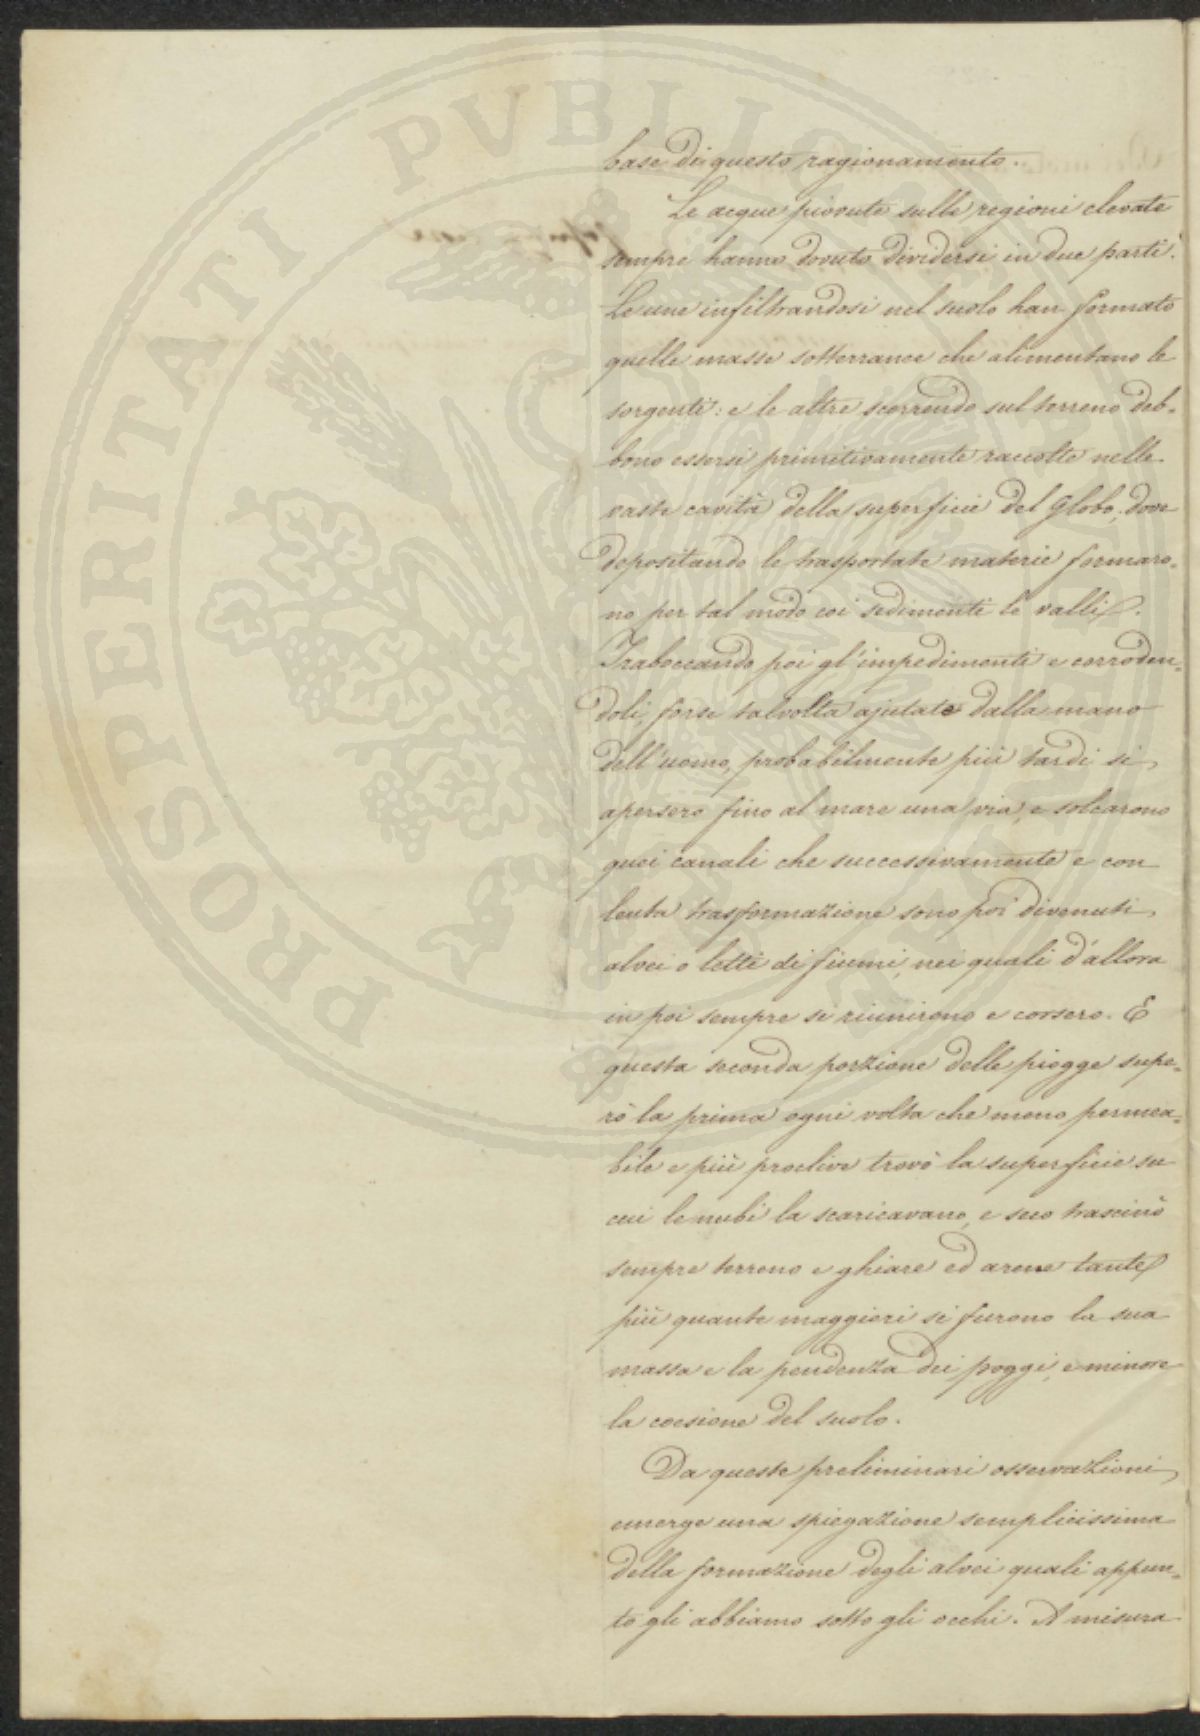 base di questo ragionamento.
Le acque piovute sulle regioni elevate
sempre hanno dovuto dividersi in due parti.
Le une infiltrandosi nel suolo han formato
quelle masse sotterranee che alimentano le
sorgenti: e le altre scorrendo sul terreno deb-
bono essersi primitivamente raccolte nelle
vaste cavità della superficie del Globo, dove
depositando le trasportate materie formaro-
no per tal modo coi sedimenti le valli.
Traboccando poi gl'impedimenti e corroden-
doli, forse talvolta ajutate dalla mano
dell'uomo, probabilmente più tardi si
apersero fino al mare una via, e solcarono
quei canali che successivamente e con
lenta trasformazione sono poi divenuti
alvei o letti di fiumi, nei quali d'allora
in poi sempre si riunirono e corsero. E
questa seconda porzione delle piogge supe-
rò la prima ogni volta che meno permea-
bile e più proclive trovò la superficie su
cui le nubi la scaricavano, e seco trascinò
sempre terreno e ghiare ed arene tante
più quante maggiori si furono la sua
massa e la pendenza dei poggi, e minore
la coesione del suolo.
Da queste preliminari osservazioni
emerge una spiegazione semplicissima
della formazione degli alvei quali appun-
to gli abbiamo sotto gli occhi. A misura
PROSPERITATI PVBLICAE